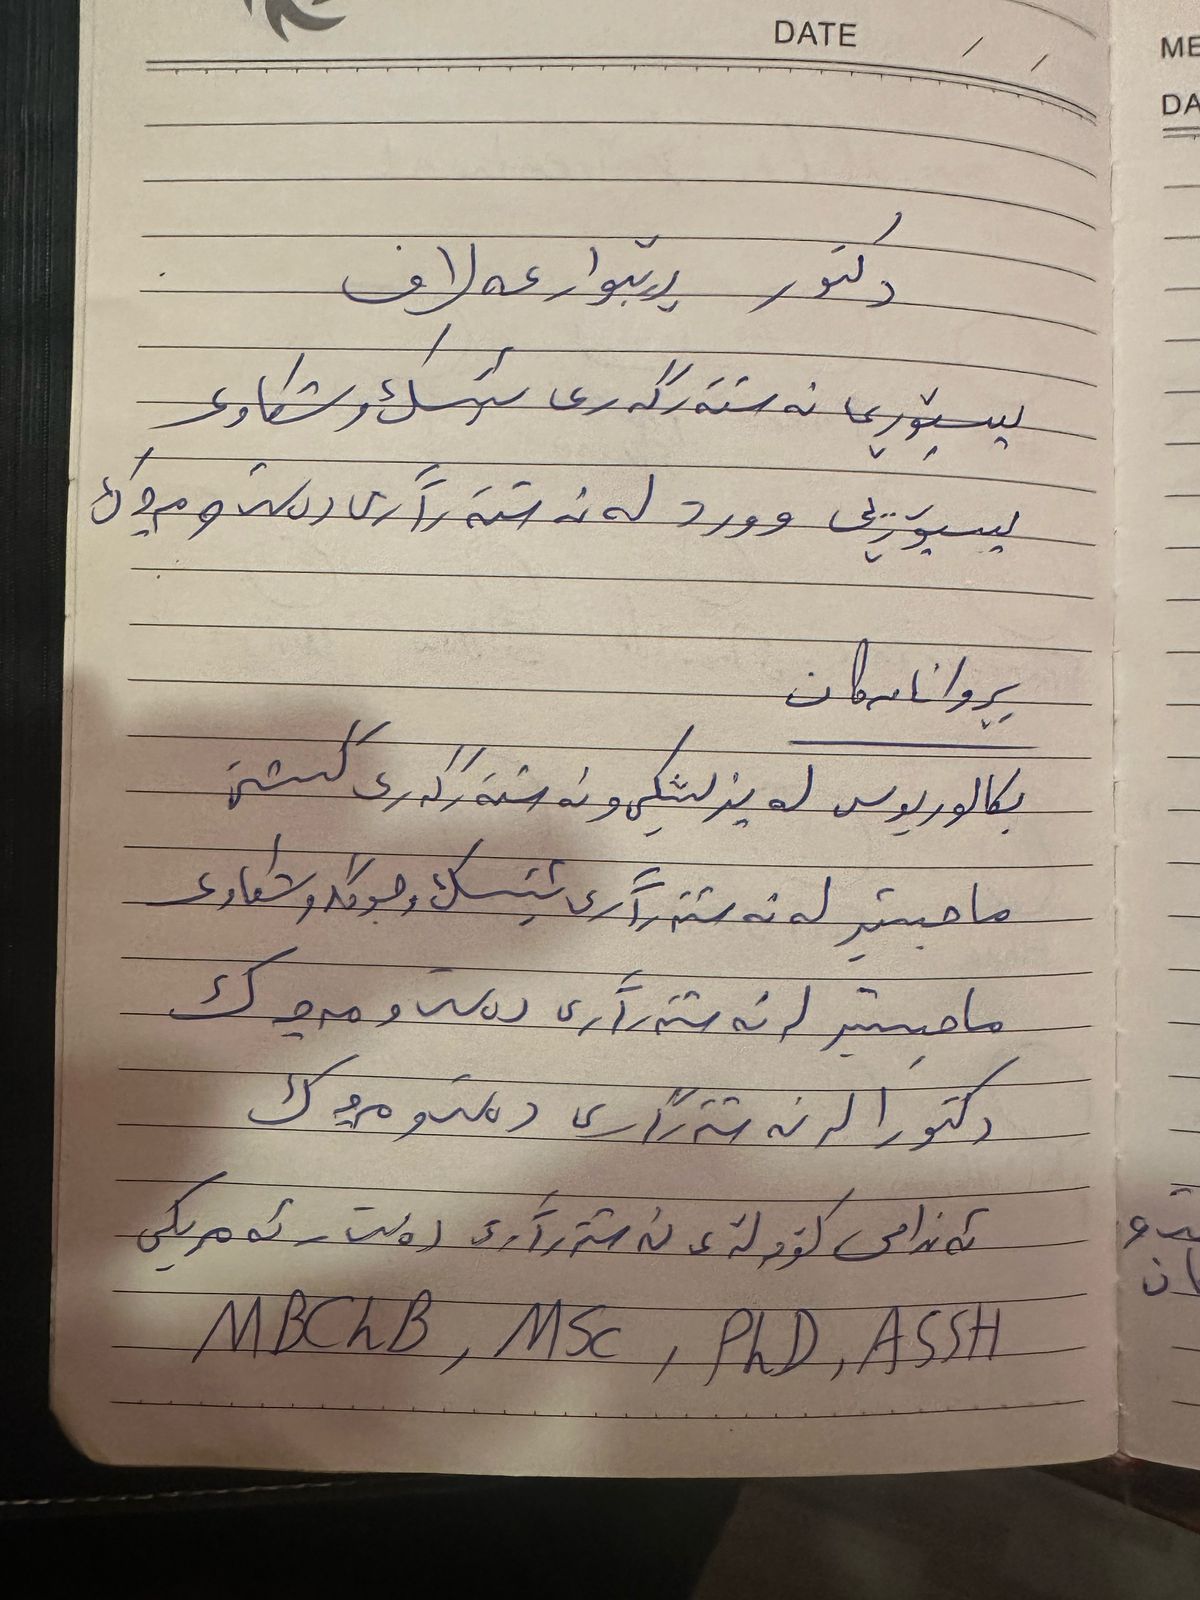 DATE / /
ME
DA
دکتور ڕێبوار عەلاف
پسپۆڕی نەشتەرگەری ئێسک و شکاوی
پسپۆڕی وورد لە نەشتەرگەری دەست و مەچەک
بڕوانامەکان
بکالوریوس لە پزیشکی و نەشتەرگەری گشتی
ماجستیر لە نەشتەرگەری ئێسک و جومگە و شکاوی
ماجستیر لە نەشتەرگەری دەست و مەچەک
دکتورا لە نەشتەرگەری دەست و مەچەک
ئەندامی کۆلەژی نەشتەرگەری دەستی ئەمریکی
MBChB, MSc, PhD, ASSH